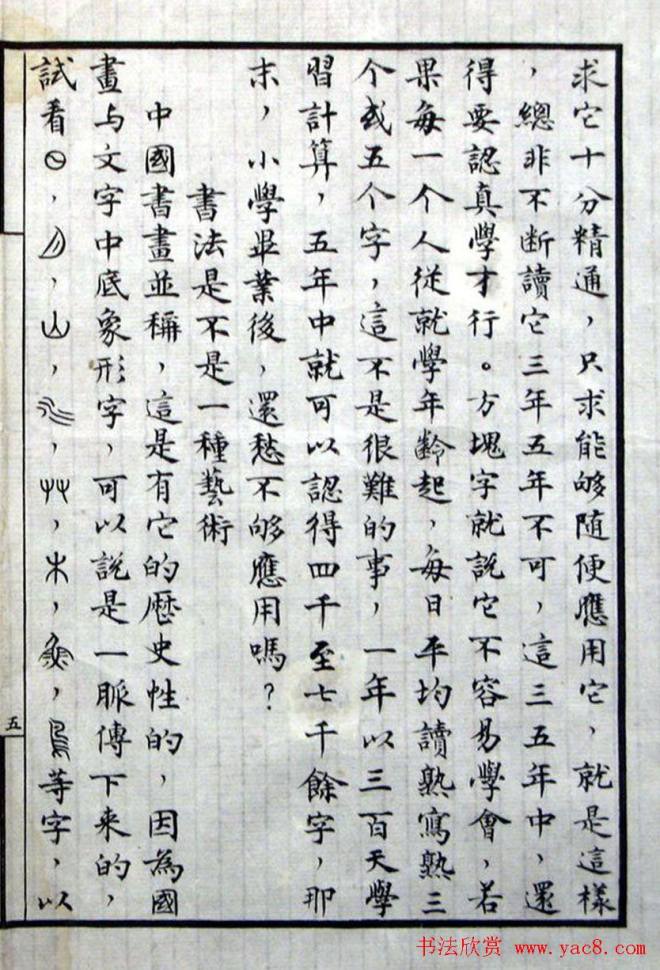 求它十分精通，只求能够隨便應用它，就是這樣
，總非不断讀它三年五年不可，這三五年中，還
得要認真學才行。方塊字就說它不容易學會，若
果每一个人從就學年齡起，每日平均讀熟寫熟三
个或五个字，這不是很難的事，一年以三百天學
習計算，五年中就可以認得四千至七千餘字，那
末，小學畢業後，還愁不够應用嗎？
書法是不是一種藝術
中國書畫並稱，這是有它的歷史性的，因為國
畫与文字中底象形字，可以說是一脈傳下来的，
試看，山，艸，木，等字，以
五
书法欣赏 www.yac8.com